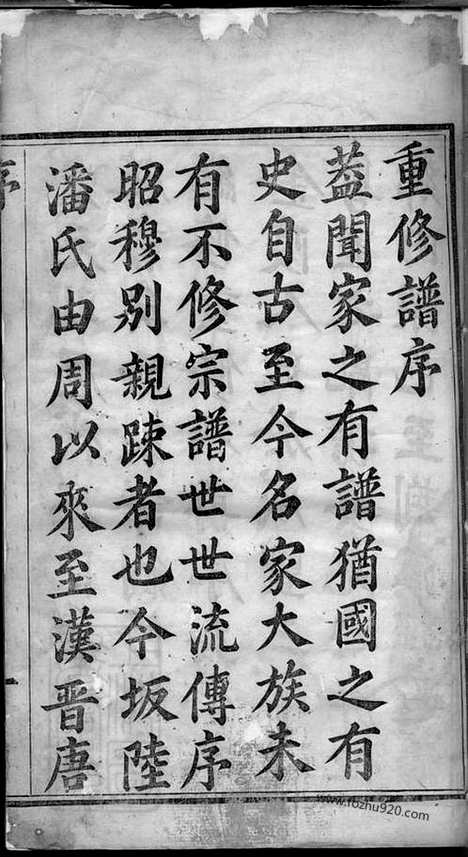 重修譜序
蓋聞家之有譜猶國之有
史自古至今名家大族未
有不修宗譜世世流傳序
昭穆别親踈者也今坂陸
潘氏由周以來至漢晋唐
序
一
www.fozhu920.com